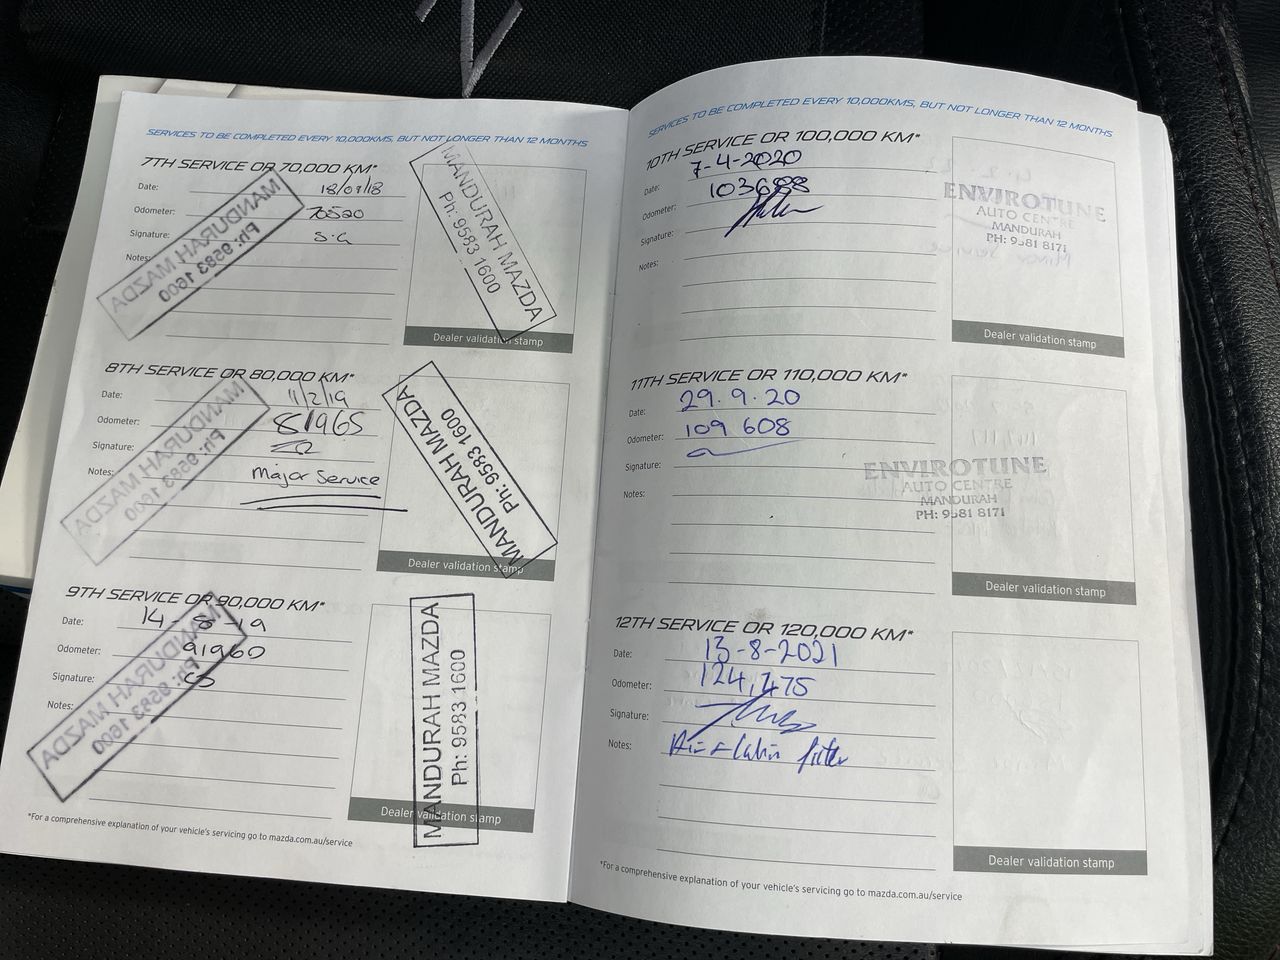 SERVICES TO BE COMPLETED EVERY 10,000KMS, BUT NOT LONGER THAN 12 MONTHS
7TH SERVICE OR 70,000 KM*
Date: 18/07/18
Odometer: 70520
Signature: S.G
Notes:
MANDURAH MAZDA
Ph: 9583 1600
MANDURAH MAZDA
Ph: 9583 1600
Dealer validation stamp
8TH SERVICE OR 80,000 KM*
Date: 1/2/19
Odometer: 81965
Signature:
Notes: Major Service
MANDURAH MAZDA
Ph: 9583 1600
MANDURAH MAZDA
Ph: 9583 1600
Dealer validation stamp
9TH SERVICE OR 90,000 KM*
Date: 14-8-19
Odometer: 91960
Signature:
Notes:
MANDURAH MAZDA
Ph: 9583 1600
MANDURAH MAZDA
Ph: 9583 1600
Dealer validation stamp
*For a comprehensive explanation of your vehicle's servicing go to mazda.com.au/service
SERVICES TO BE COMPLETED EVERY 10,000KMS, BUT NOT LONGER THAN 12 MONTHS
10TH SERVICE OR 100,000 KM*
Date: 7-4-2020
Odometer: 103688
Signature:
Notes:
ENVIROTUNE
AUTO CENTRE
MANDURAH
PH: 9581 8171
Dealer validation stamp
11TH SERVICE OR 110,000 KM*
Date: 29.9.20
Odometer: 109 608
Signature:
Notes:
ENVIROTUNE
AUTO CENTRE
MANDURAH
PH: 9581 8171
Dealer validation stamp
12TH SERVICE OR 120,000 KM*
Date: 13-8-2021
Odometer: 124,475
Signature:
Notes: Air + Cabin filter
Dealer validation stamp
*For a comprehensive explanation of your vehicle's servicing go to mazda.com.au/service